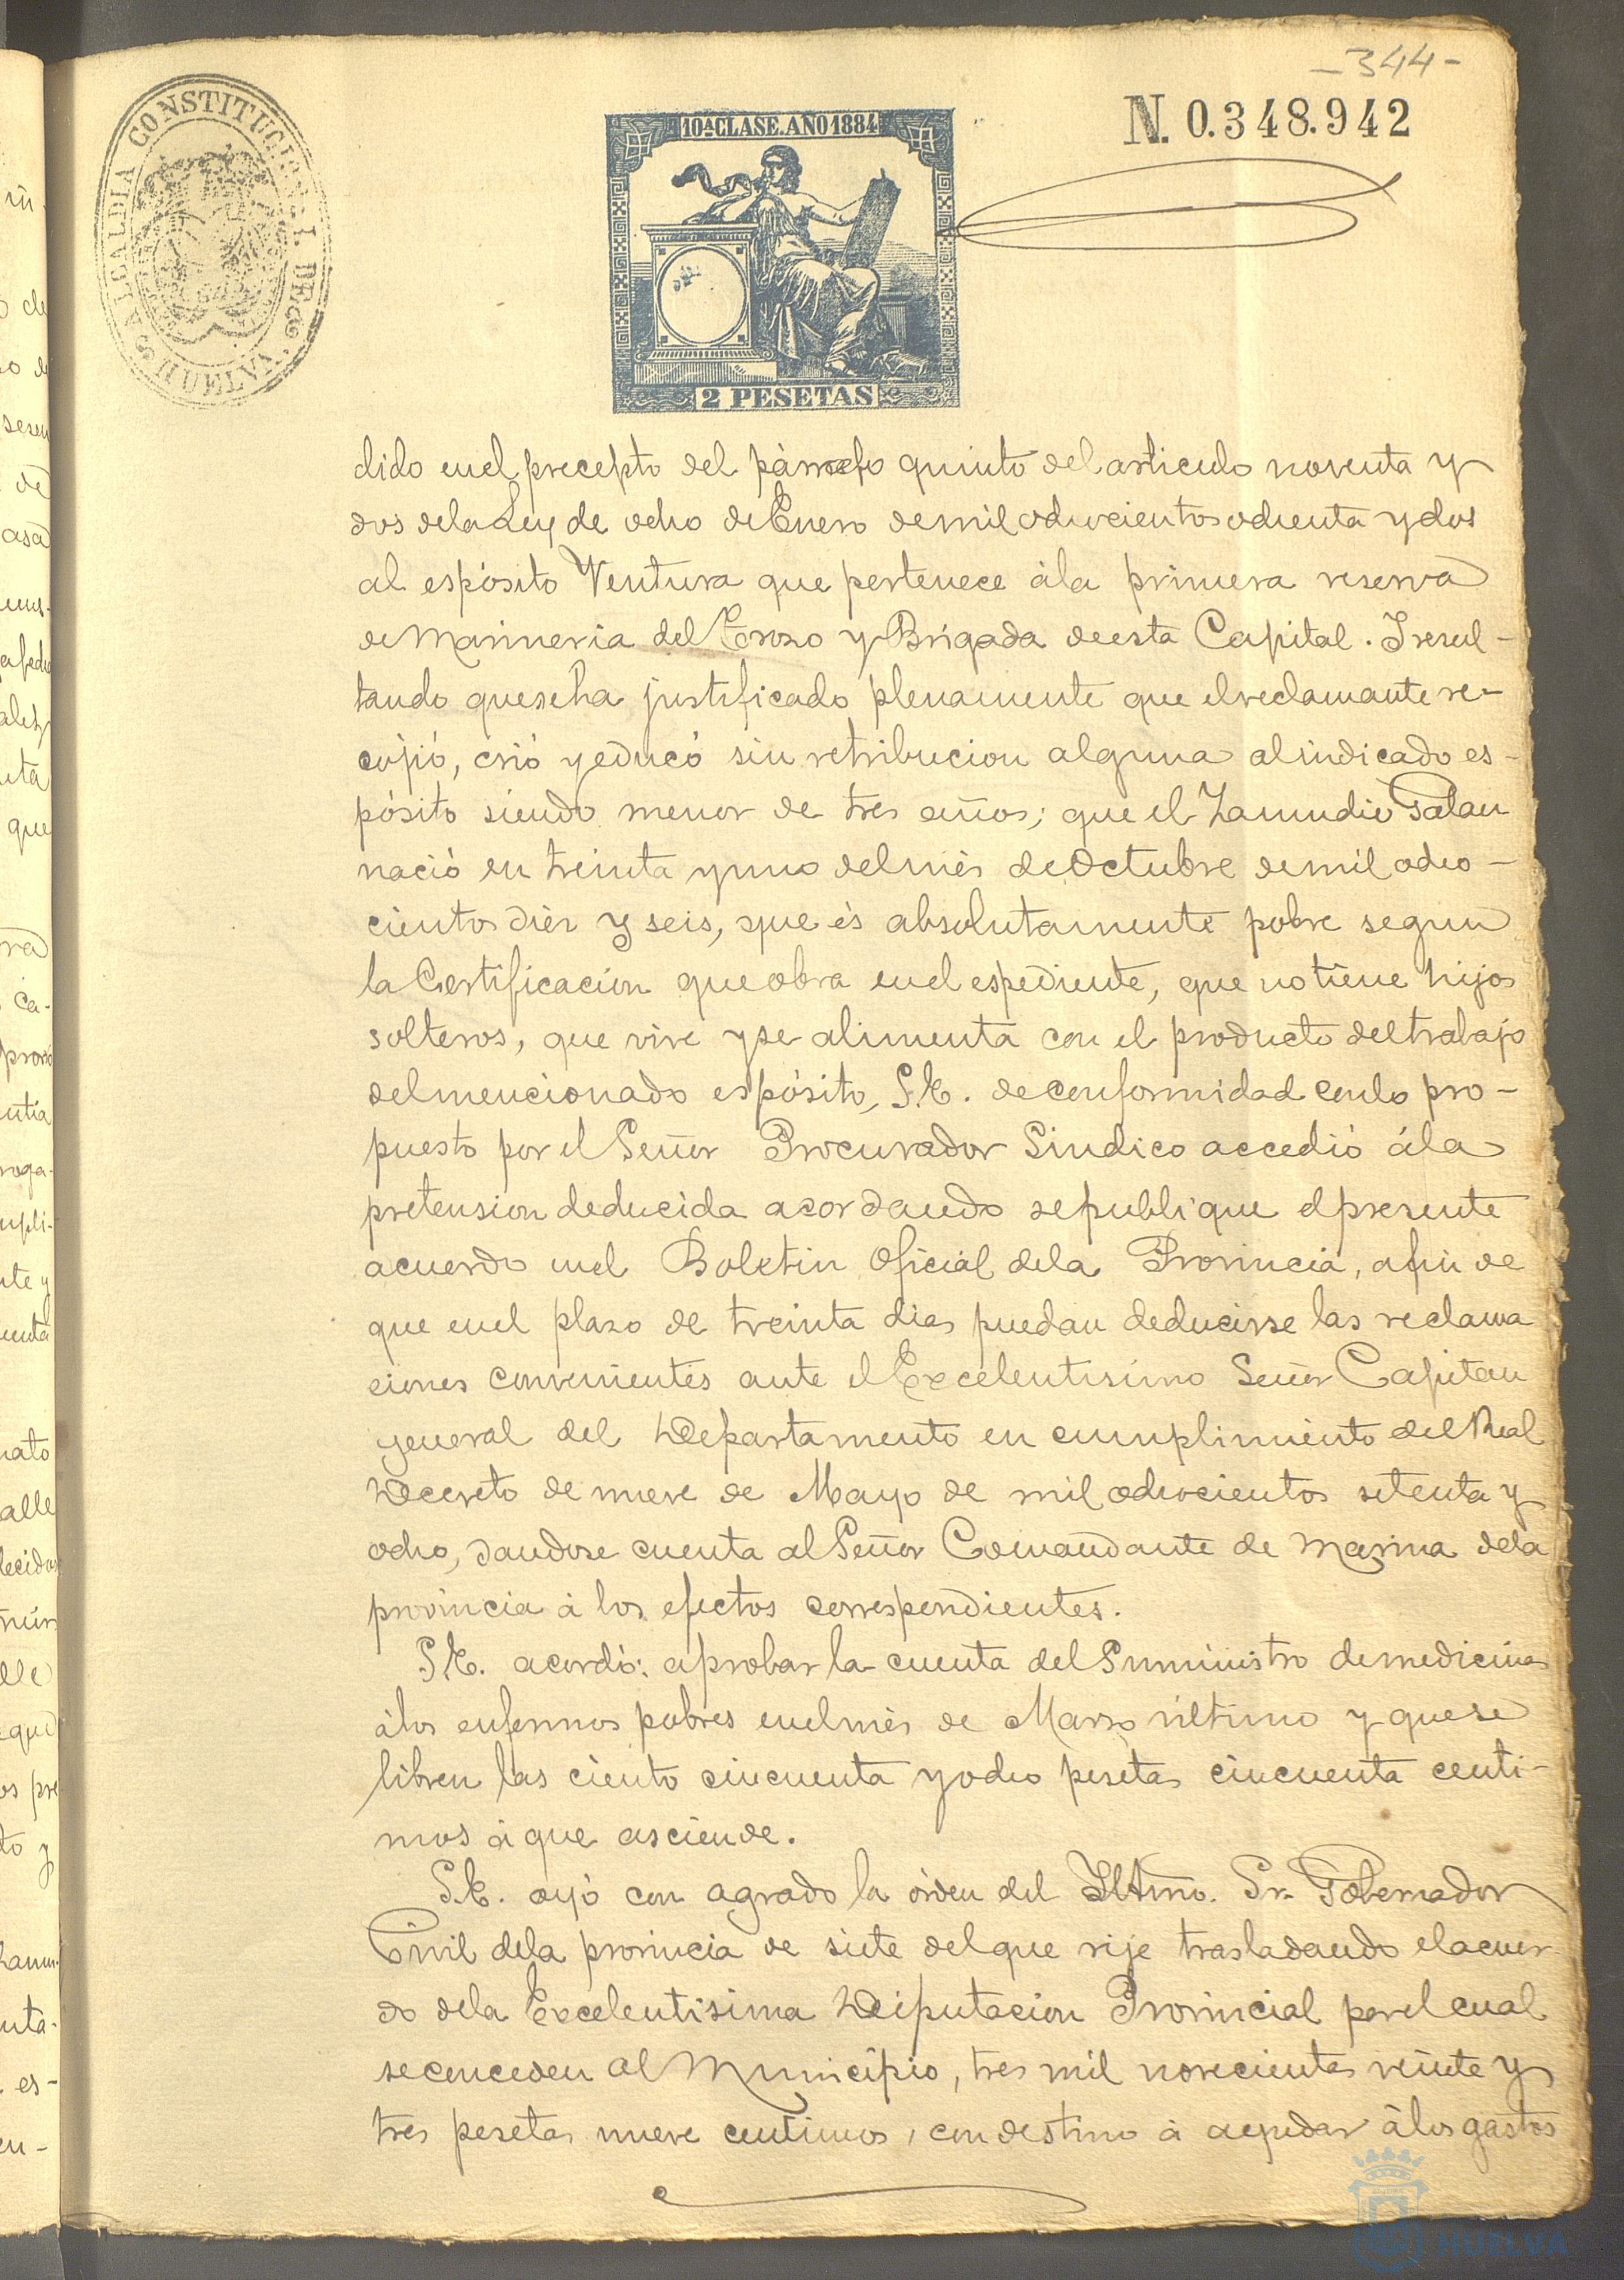 -344-
N. 0.348.942
ALCALDIA CONSTITUCIONAL DE
HUELVA
10ª CLASE. AÑO 1884
2 PESETAS
dido en el precepto del párrafo quinto del articulo noventa y
dos de la Ley de ocho de Enero de mil ochocientos ochenta y dos
al espósito Ventura que pertenece á la primera reserva
de Marineria del Trozo y Brigada de esta Capital. Y resul-
tando que se ha justificado plenamente que el reclamante re-
cojió, crió y educó sin retribucion alguna al indicado es-
pósito siendo menor de tres años; que el Zamudio Galan
nació en treinta y uno del mes de Octubre de mil ocho-
cientos diez y seis, que és absolutamente pobre segun
la Certificacion que obra en el espediente, que no tiene hijos
solteros, que vive y se alimenta con el producto del trabajo
del mencionado espósito, S.E. de conformidad con lo pro-
puesto por el Señor Procurador Sindico accedió á la
pretension deducida acordando se publique el presente
acuerdo en el Boletin Oficial de la Provincia, a fin de
que en el plazo de treinta dias puedan deducirse las reclama
ciones convenientes ante el Excelentisimo Señor Capitan
general del Departamento en cumplimiento del Real
Decreto de nueve de Mayo de mil ochocientos setenta y
ocho, dandose cuenta al Señor Comandante de Marina de la
provincia á los efectos correspondientes.
S.E. acordó: aprobar la cuenta del Suministro de medicinas
á los enfermos pobres en el mes de Marzo último y que se
libren las ciento cincuenta y ocho pesetas cincuenta centi-
mos á que asciende.
S.E. oyó con agrado la órden del Iltmo. Sr. Gobernador
Civil de la provincia de siete del que rije trasladando el acuer-
do de la Excelentisima Diputacion Provincial por el cual
se conceden al Municipio, tres mil novecientas veinte y
tres pesetas nueve centimos, con destino á ayudar á los gastos
HUELVA